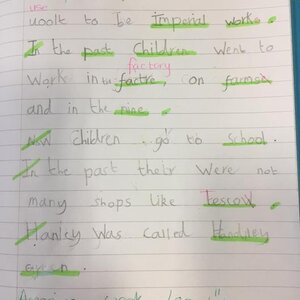 use
uoolt to be Imperial works.
In the past Children went to
factory
work in the factre, on farmsd
and in the mine.
Now children go to school.
In the past their were not
many shops like Tescow.
Hanley was called Handley